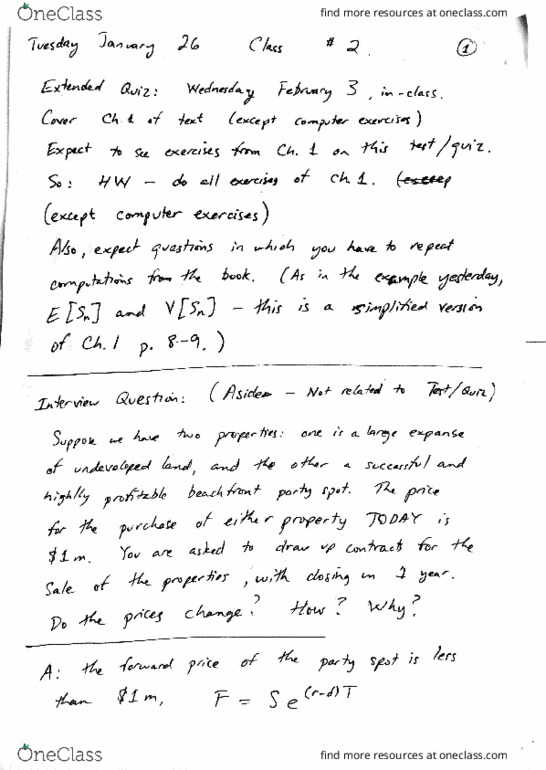 OneClass find more resources at oneclass.com
Tuesday January 26 Class # 2. 1
Extended Quiz: Wednesday February 3, in-class.
Cover Ch. 1 of text (except computer exercises)
Expect to see exercises from Ch. 1 on this test/quiz.
So: HW - do all exercises of Ch 1.
(except computer exercises)
Also, expect questions in which you have to repeat
computations from the book. (As in the example yesterday,
E[Sn] and V[Sn] - this is a simplified version
of Ch. 1 p. 8-9.)
Interview Question: (Aside - Not related to Test/Quiz)
Suppose we have two properties: one is a large expanse
of undeveloped land, and the other a successful and
highlly profitable beachfront party spot. The price
for the purchase of either property TODAY is
$1m. You are asked to draw up contracts for the
Sale of the properties, with closing in 1 year.
Do the prices change? How? Why?
A: the forward price of the party spot is less
than $1m, F = S e^(r-d)T
OneClass find more resources at oneclass.com